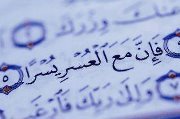 عَنكَ وِزْرَكَ
فَإِنَّ مَعَ ٱلْعُسْرِ يُسْرًا
وَإِلَىٰ رَبِّكَ فَٱرْغَب